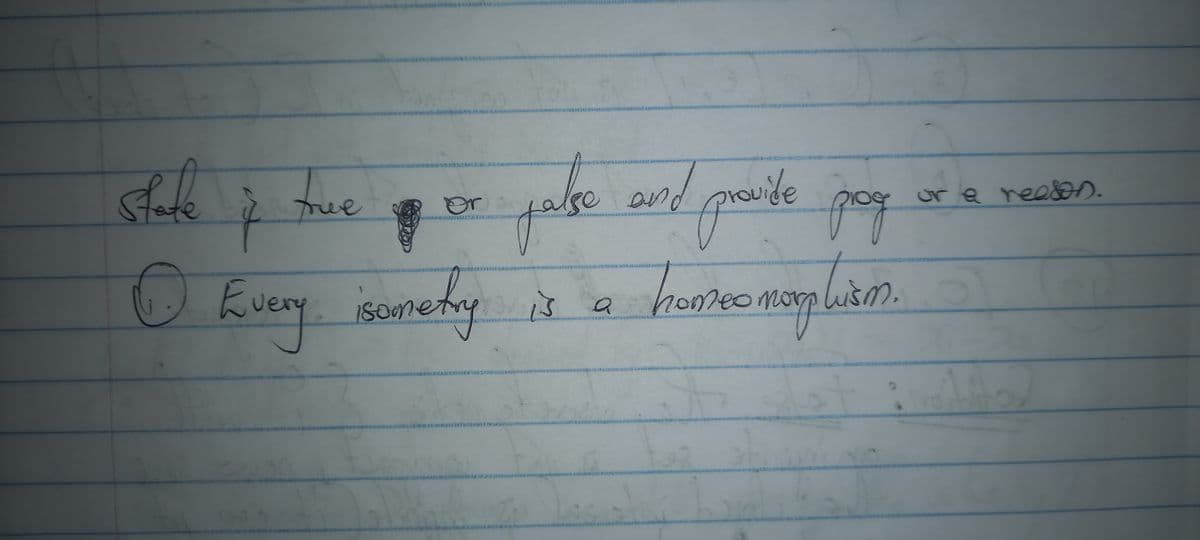 State if true or false and provide proof or a reason.
1. Every isometry is a homeomorphism.